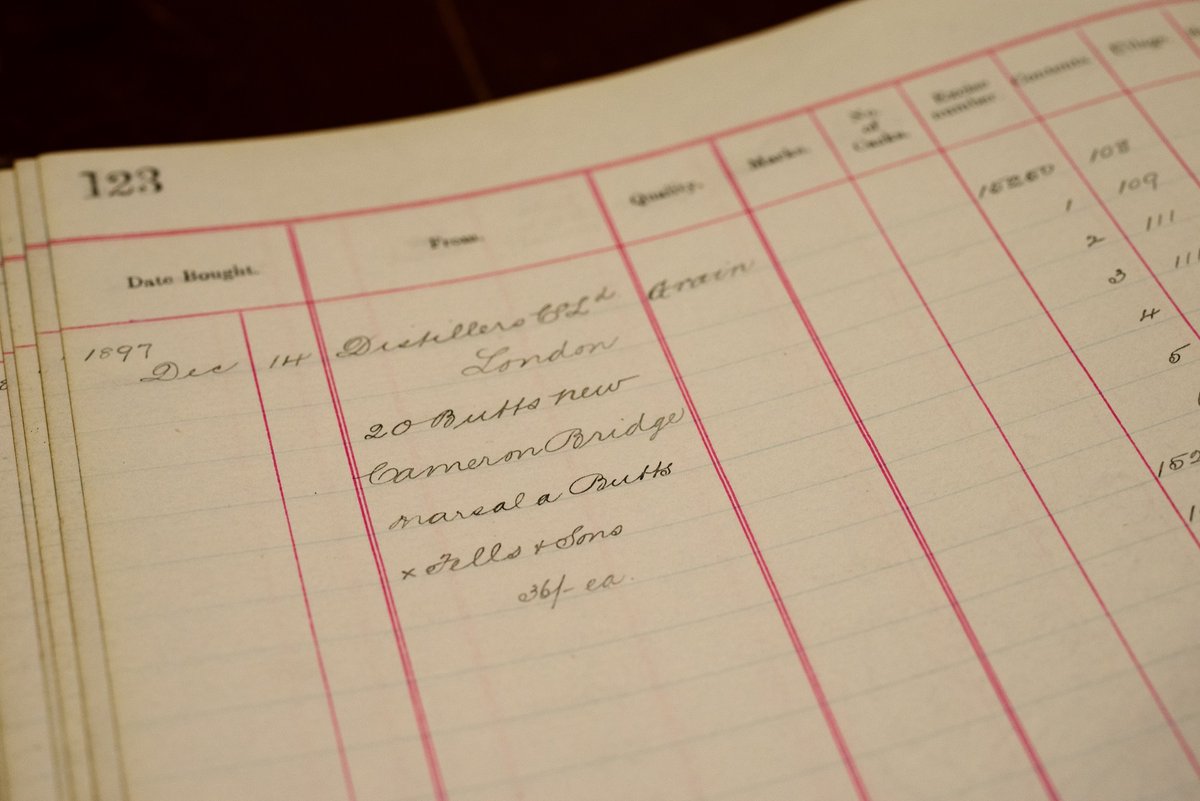 123
Date Bought.
From.
Quality.
Marks.
No. of Casks.
Racine number
Contents.
Ullage.
1897
Dec 14 Distillers Co Ld Grain
London
20 Butts new
Cameron Bridge
marsala Butts
x Fells & Sons
36/- ea.
15260 108
1 109
2 111
3 111
4
5
152
1